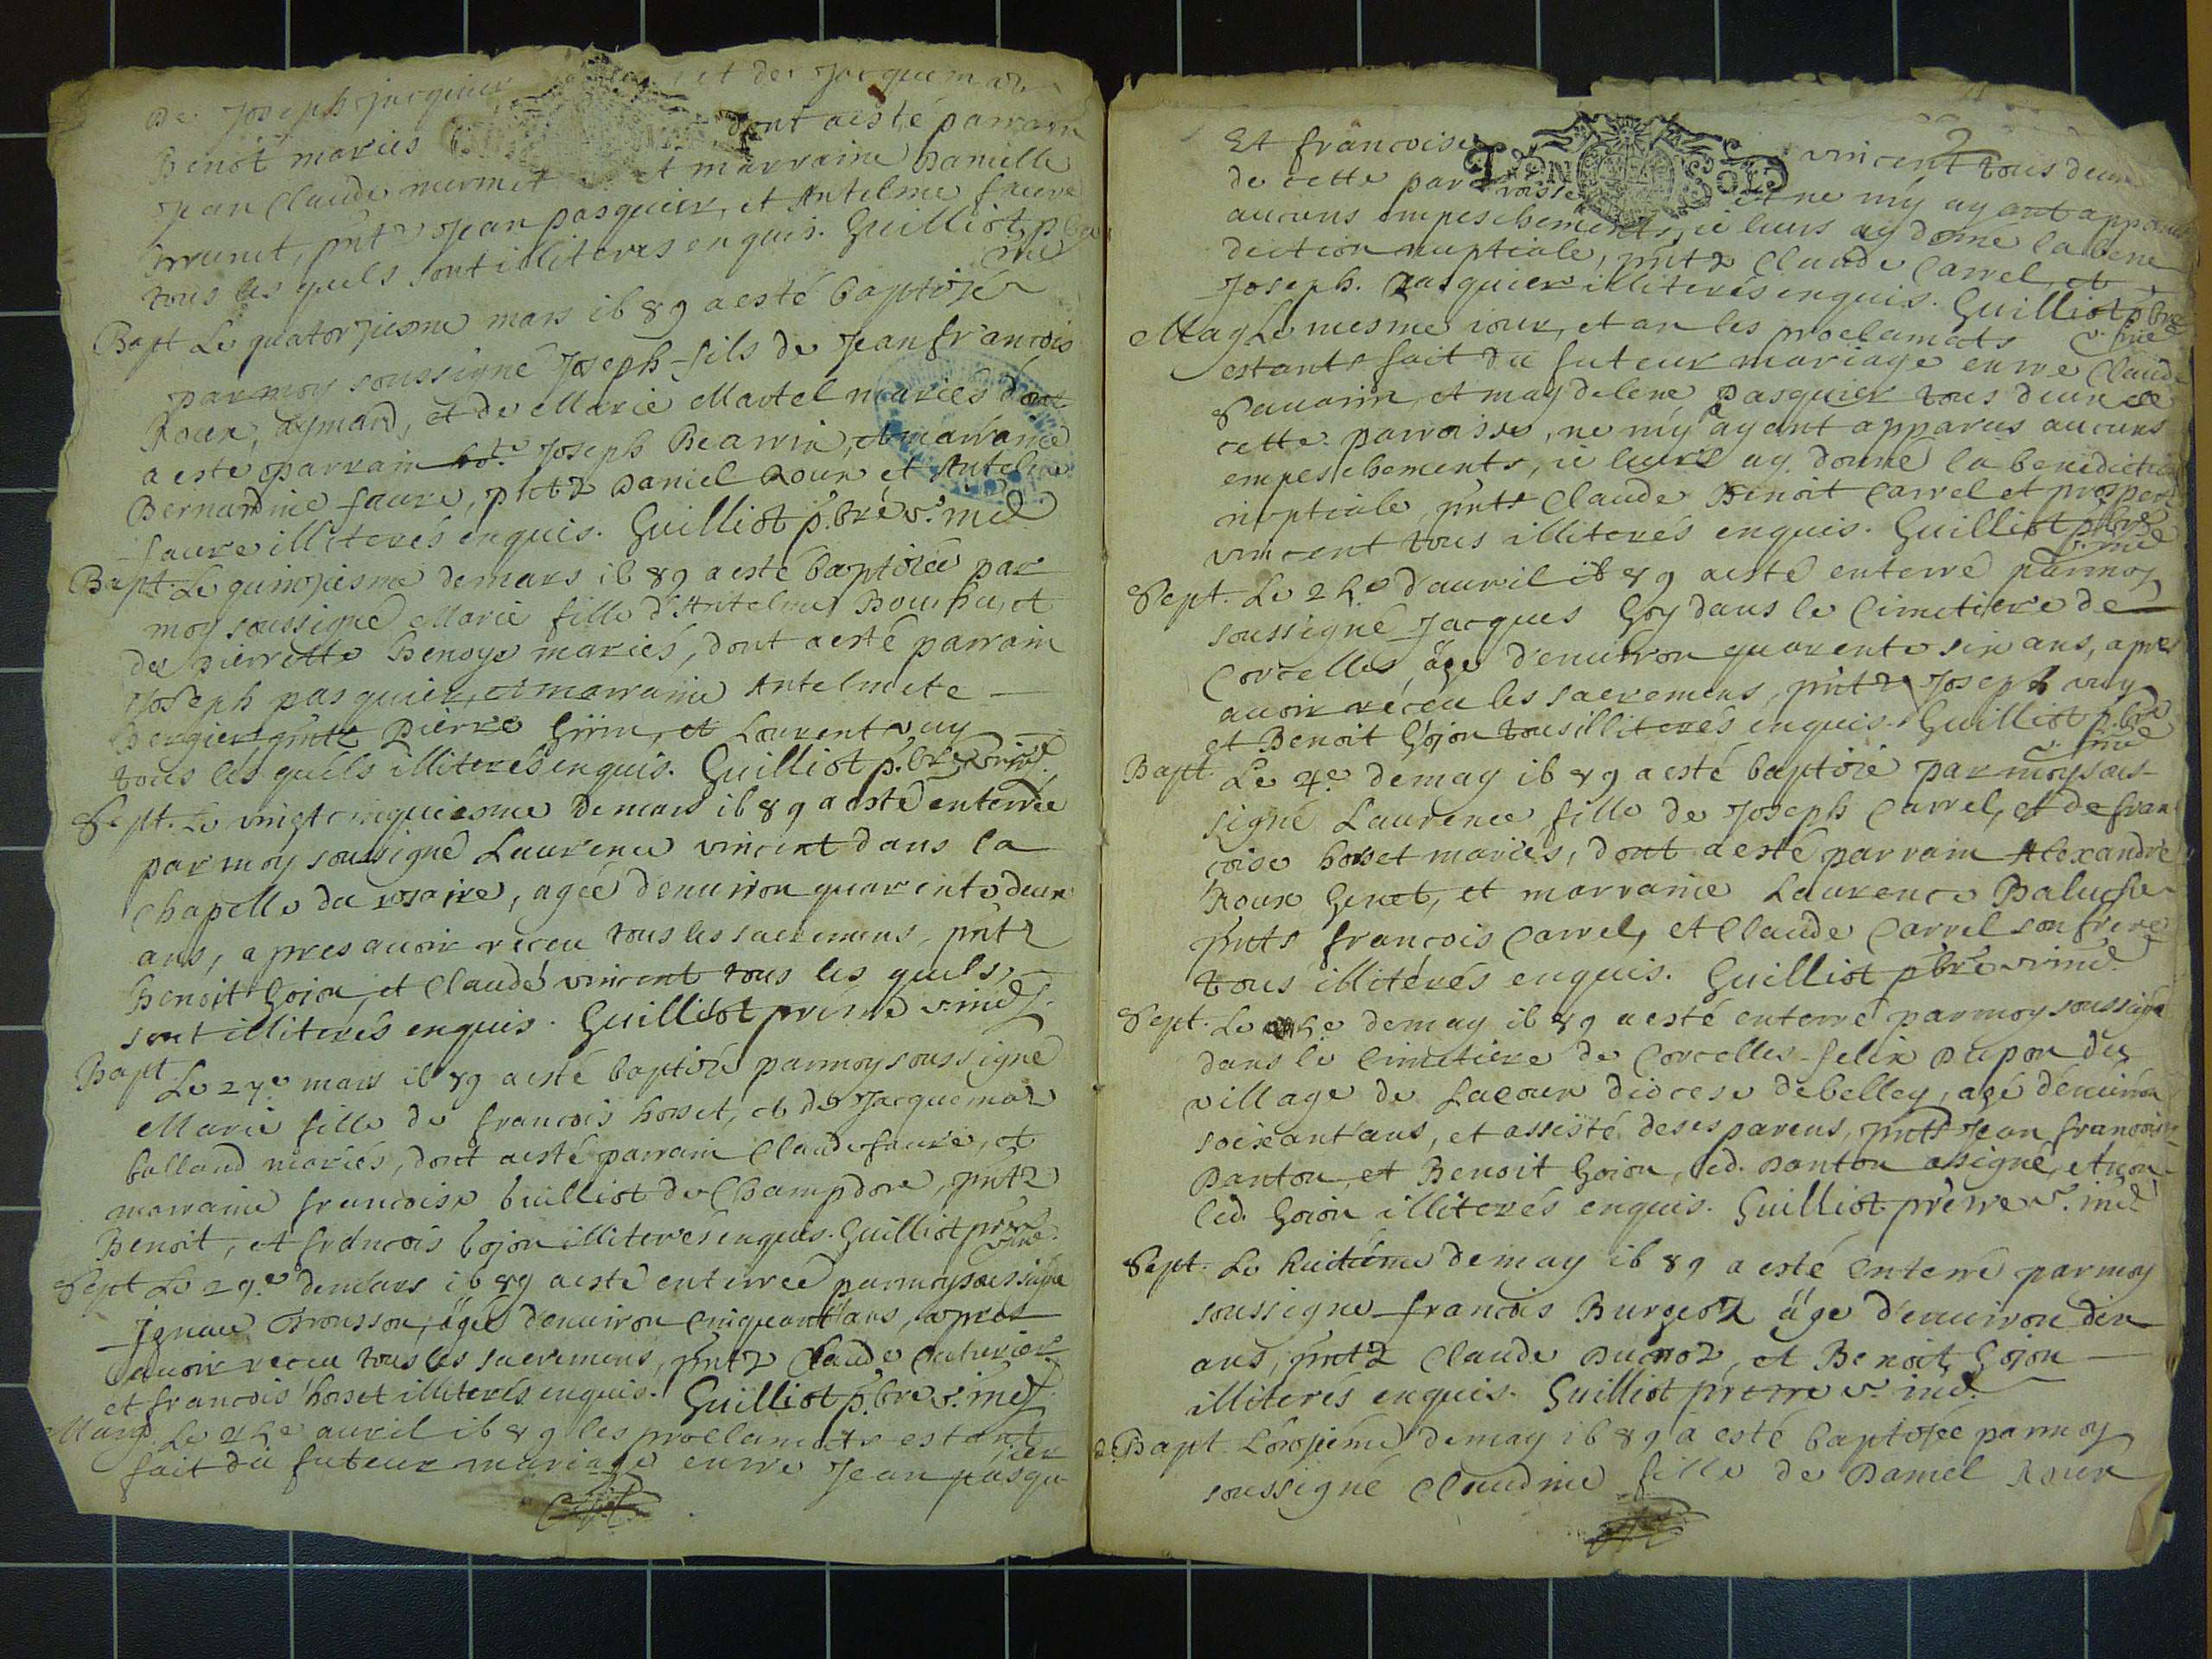 de Joseph Jacquier et de Jacquemaz
Benoit mariés dont a esté parrain
Jean Claude mermet et marraine Danielle
Brunet, pntz Jean pasquier, et Antelme faure
tous les quels sont illiterés enquis. Guilliot pbre
Bapt Le quatorziesme mars i689 a esté baptisé
par moy soussigné Joseph fils de Jean francois
Roux, aymard, et de Marie Martel mariés dont
a esté parrain Joseph Bearrin, et marraine
Bernardine faure, pntz Daniel Roux et Antelme
faure illiterés enquis. Guilliot p.bre v. ind
Bapt. Le quinziesme de mars i689 a esté baptisée par
moy soussigné Marie fille d'Antelme Bouchu, et
de Pierrette Benoye mariés, dont a esté parrain
Joseph pasquier, et marraine Antelmete
Bergier pntz Pierre Giin, et Laurent vuy
tous les quels illiterés enquis. Guilliot p.bre v. ind.
Sept. Le vingt cinquiesme de mars i689 a esté enterrée
par moy soussigné Laurence vincent dans la
Chapelle du rosaire, agée d'enuiron quarente deux
ans, apres auoir receu tous les sacremens, pntz
Benoit Gojon, et Claude vincent tous les quels,
sont illiterés enquis. Guilliot prêtre v. ind.
Bapt Le 27e mars i689 a esté baptisé par moy soussigné
Marie fille de francois horset, et de Jacquemaz
balland mariés, dont a esté parrain Claude faure, et
marraine francoise builliot de Champdore, pntz
Benoit, et francois bojon illiterés enquis. Guilliot prêtre
v. ind.
Sept Le 29.e de mars i689 a esté enterrée par moy soussigné
Ignace trousson, agée d'enuiron cinquant'ans, apres
auoir receu tous les sacremens, pntz Claude Cuturier
et francois horset illiterés enquis. Guilliot p.bre v. ind.
Mary. Le 21e auril i689 les proclamats estant
fait du futeur mariage entre Jean pasqu
ier
2
Et francoise vincent tous deux
de cette parroisse et ne m'y ayant apparus
aucuns empeschements, ie leurs ay donné la bene
diction nuptiale, pntz Claude Carrel, et
Joseph. pasquier illiterés enquis. Guilliot pbre
v. ind
Mag Le mesme iour, et an les proclamats
estants fait du futeur mariage entre Claude
Sauarin, et magdelene pasquier tous deux de
cette parroisse, ne m'y ayant apparus aucuns
empeschements, ie leurs ay donné la benediction
nuptiale pnts Claude Benoit Carrel et prosper
vincent tous illiterés enquis. Guilliot pbre
v. ind
Sept. Le 25e d'auril i689 a esté enterré par moy
soussigné Jacques Goy dans le Cimetiere de
Corcelles, age d'enuiron quarente six ans, apres
auoir receu les sacremens, pntz Joseph vuy
et Benoit Gojon tous illiterés enquis. Guilliot p.bre
v. ind
Bapt. Le 4.e de may i689 a esté baptisé par moy sous-
signé Laurence fille de Joseph Carrel, et de fran
coise horset mariés, dont a esté parrain Alexandre
Roux Genet, et marraine Laurence Baluche
pnts françois Carrel, et Claude Carrel son frere
tous illiterés enquis. Guilliot pbre v. ind.
Sept. Le 5e de may i689 a esté enterré par moy soussigné
dans le Cimetiere de Corcelles felix Dupon du
village de Lacoux diocese de belley, agé d'enuiron
soixant'ans, et assisté de ses parens, pnts Jean francois
Danton, et Benoit Gojon, led. Danton a signé, et non
led. Gojon illiterés enquis. Guilliot prêtre v. ind
Sept. Le huitième de may i689 a esté enterré par moy
soussigne francois Burgeoz äge d'enuiron dix
ans, pntz Claude Ducroz, et Benoit Gojon
illiterés enquis. Guilliot prêtre v. ind.
Bapt. L'onzième de may i689 a esté baptisée par moy
soussigné Claudine fille de Daniel Roux